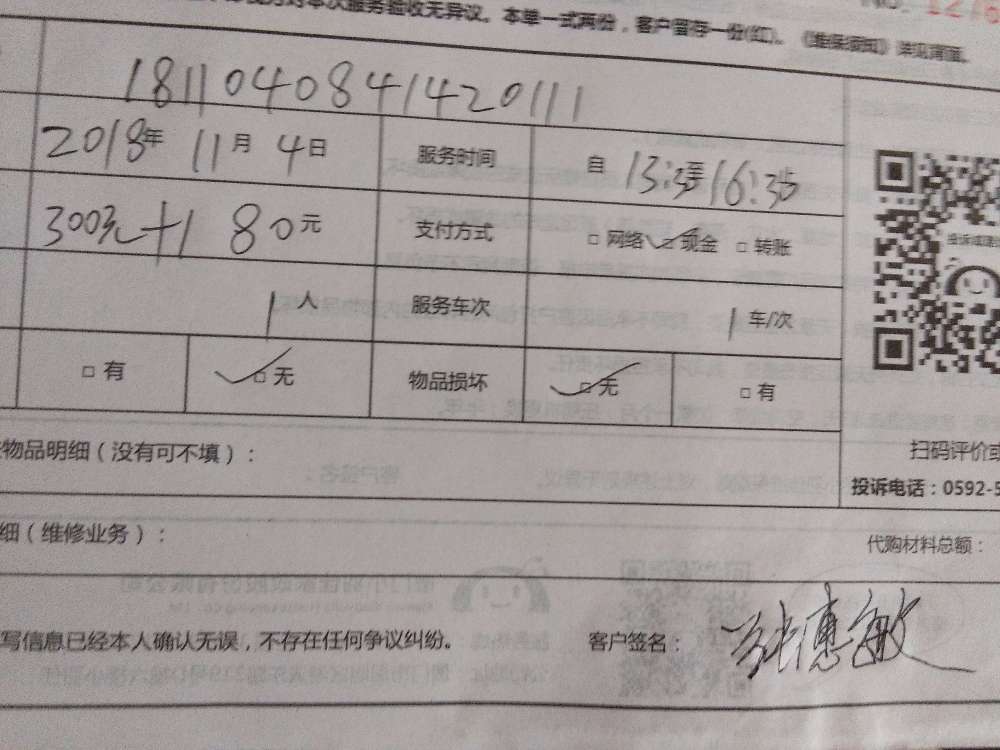 对本次服务验收无异议。本单一式两份，客户留存一份(红)。《维保须知》详见背面。
1811040841420111
2018年 11月 4日 服务时间 自
300元+1 80元 支付方式 □ 网络 □ 现金 □ 转账
1人 服务车次 1车/次
□ 有 □ 无 物品损坏 □ 无 □ 有
物品明细（没有可不填）：
扫码评价或
投诉电话：0592-5
细（维修业务）：
代购材料总额：
写信息已经本人确认无误，不存在任何争议纠纷。 客户签名：张惠敏